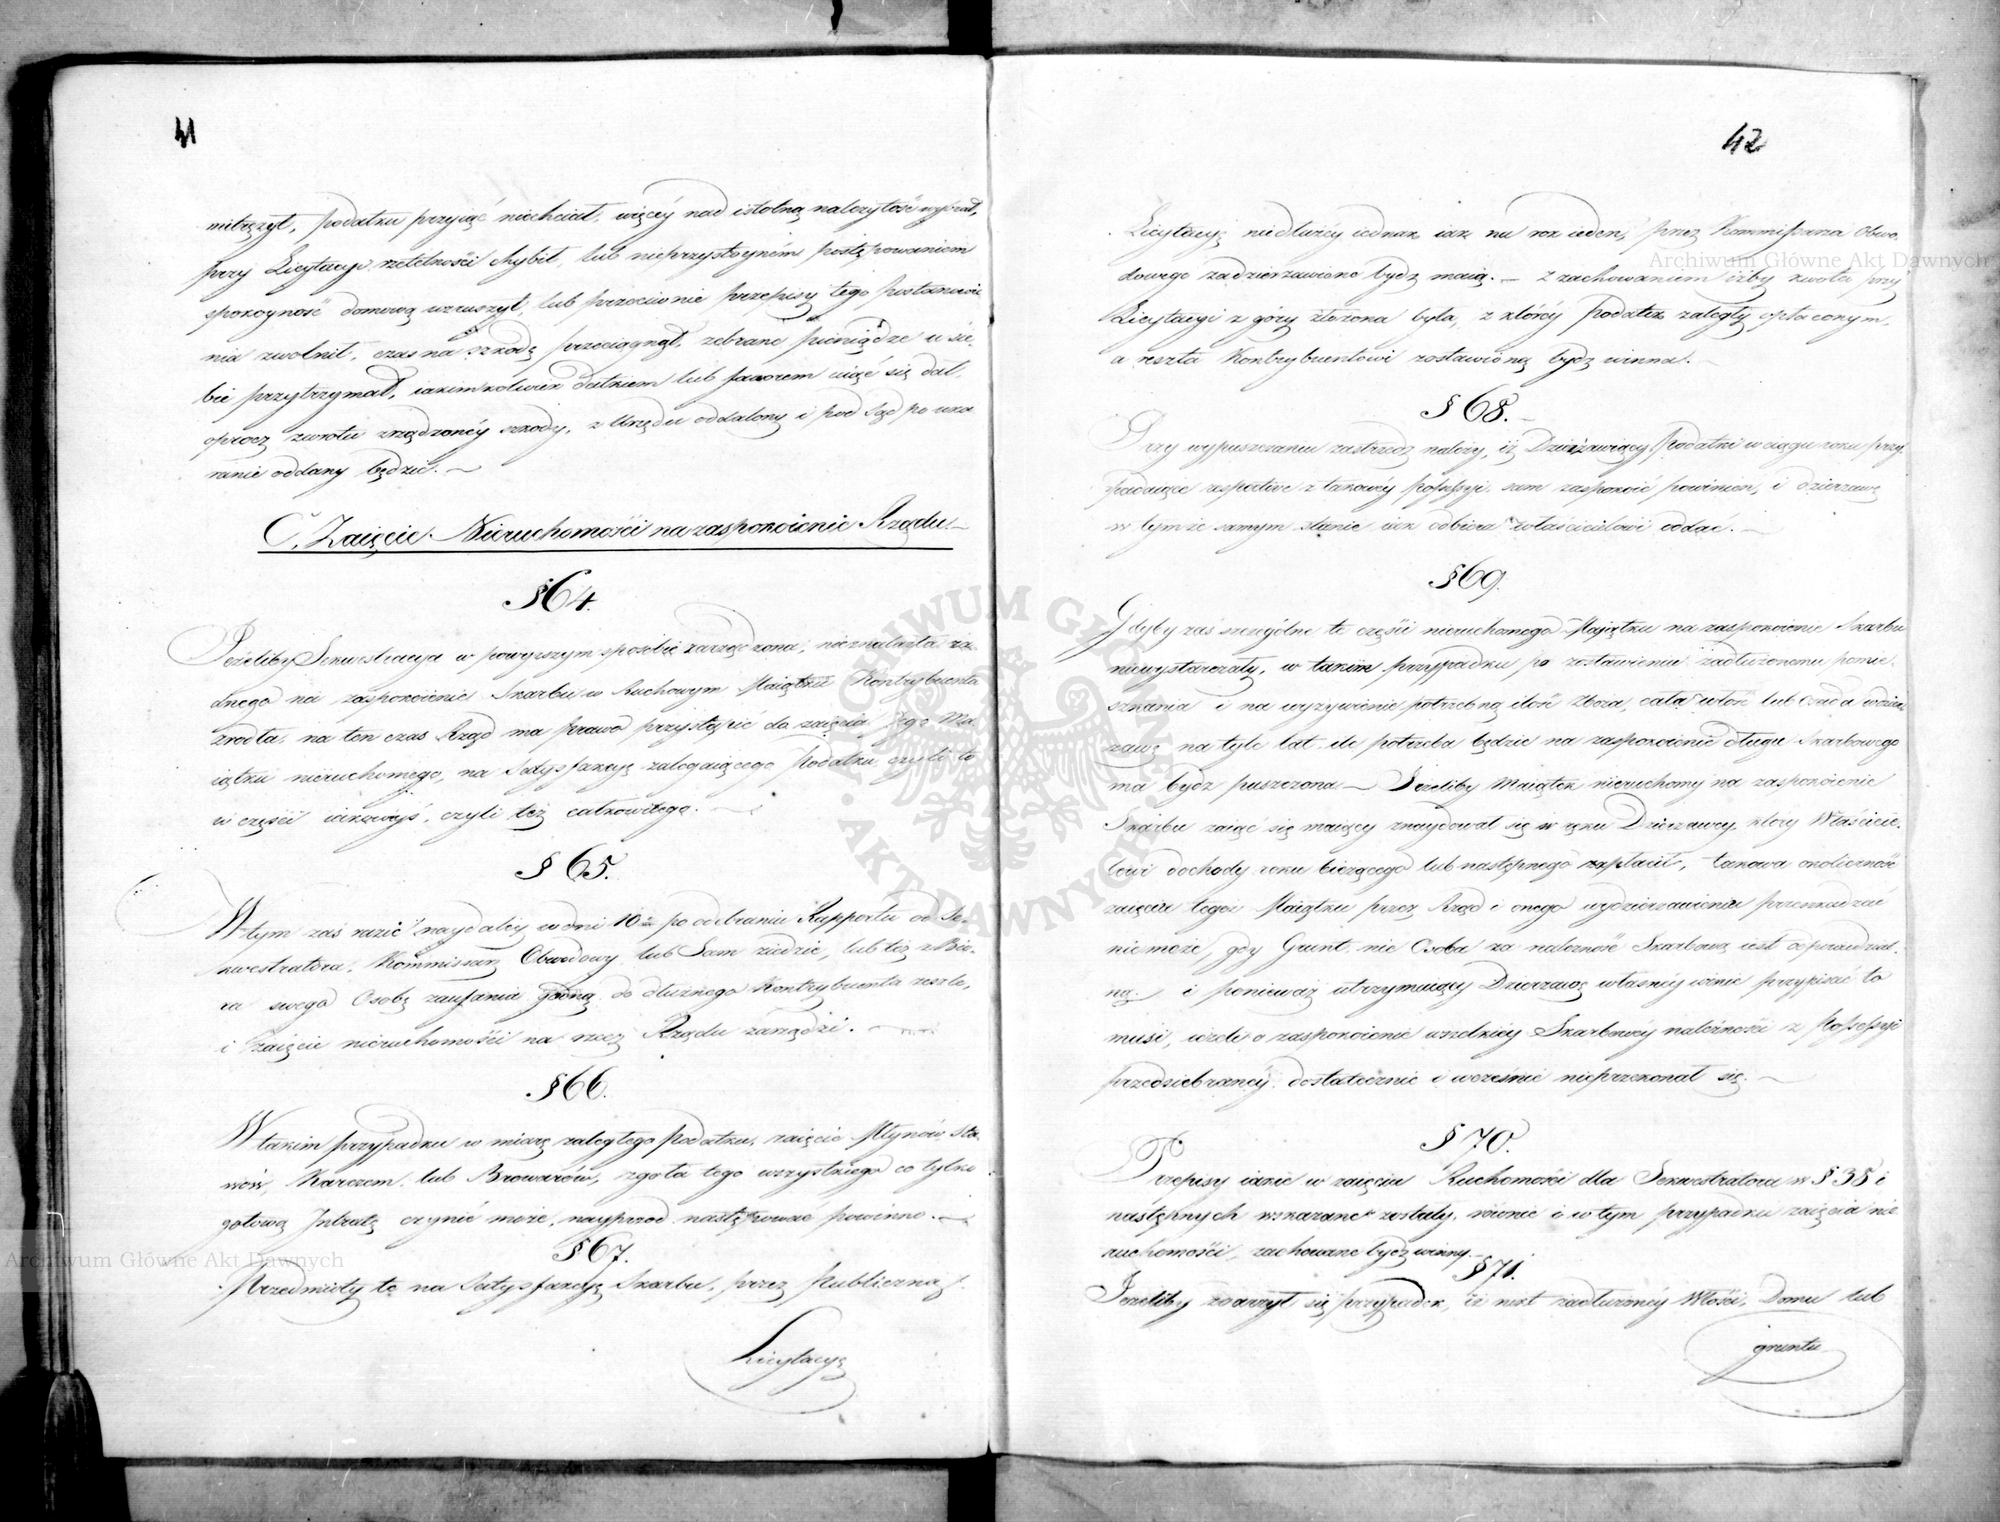 41
mitrężył, podatku przyiąć niechciał, więcéy nad istotną należytość wybrał,
przy Licytacyi rzetelności chybił, lub nieprzystoynem postępowaniem
spokoyność domową wzruszył, lub przeciwnie przepisy tego postanowie
nia zwolnił, czas na szkodę przeciągnął, zebrane pieniądze u sie,
bie przytrzymał, iakimkolwiek datkiem lub faworem uiąć się dał,
oprocz zwrotu zrządzonéy szkody, z Urzędu oddalony i pod Sąd po uka
ranie oddany będzie. —
C, Zaięcie Nieruchomości na zaspokoienie Rządu —
§ 64.
Jeżeliby Sekwestracya w powyższym sposobie zarządzona, nieznalazła ża,
dnego na zaspokoienie Skarbu w Ruchowym Maiątku Kontrybuenta
źrodła, na ten czas Rząd ma prawo przystąpić do zaięcia Jego Ma,
iątku nieruchomego, na Satysfakcyę zalegaiącego Podatku czyli to
w części iakowéyś, czyli też całkowitego. —
§ 65.
W tym zaś razie naydaléy w dni 10 po odebraniu Rapportu od Se,
kwestratora, Kommissarz Obwodowy lub Sam ziedzie, lub też z Biu,
ra swego Osobę zaufania godną do dłużnego Kontrybuenta zeszle,
i zaięcie nieruchomości na rzecz Rządu zarządzi. —
§ 66.
W takim przypadku w miarę zaległego Podatku, zaięcie Młynów Sta
wów, Karczem lub Browarów, zgoła tego wszystkiego co tylko
gotową Intratę czynić może, nayprzod następować powinno. —
§ 67.
Przedmioty te na Satysfakcyę Skarbu, przez Publiczną
Licytacyę
42
Licytacyę niedłużéy iednak iak na rok ieden, przez Kommissarza Obwo,
dowego zadzierzawione bydź maią. — z zachowaniem iżby kwota przy
Licytacyi z góry złożona była, z któréy Podatek zaległy opłaconym,
a reszta Kontrybuentowi zostawioną bydź winna. —
§ 68. —
Przy wypuszczaniu zastrzedz należy, iż Dzierżawiący Podatki w ciągu roku przy,
padaiące respective z takowéy Possessyi sam zaspokoić powinien, i dzierzawę
w tymże samym stanie iak odbiera właścicielowi oddać. —
§ 69.
Gdyby zaś szczególne te części nieruchomego Maiątku na zaspokoienie Skarbu
niewystarczały, w takim przypadku po zostawieniu zadłużonemu pomie,
szkania i na wyżywienie potrzebną ilość zboża, cała włość lub Osada w dzier
zawę na tyle lat, ile potrzeba będzie na zaspokoienie długu Skarbowego
ma bydź puszczona — Jeżeliby Maiątek nieruchomy na zaspokoienie
Skarbu zaiąć się maiący znaydował się w ręku Dzierzawcy, ktory Właścicie,
lowi dochody roku bieżącego lub następnego zapłacił, takowa okoliczność
zaięciu tegoż Maiątku przez Rząd i onego wydzierzawieniu przeszkadzać
nie może, gdy Grunt nie Osoba za należność Skarbową iest odpowiedzial,
ną, i ponieważ utrzymuiący Dzierzawę własnéy winie przypisać to
musi, ieżeli o zaspokoienie wszelkiéy Skarbowéy należności z Possessyi
przedsiebranéy dostatecznie i wcześnie nieprzekonał się. —
§ 70.
Przepisy iakie w zaięciu Ruchomości dla Sekwestratora w § 38 i
następnych wskazane zostały, rownie i w tym przypadku zaięcia nie
ruchomości, zachowane bydź winny. —
§ 71.
Jeżeliby zdarzył się przypadek, iż nikt zadłużonéy Włości, Domu lub
gruntu